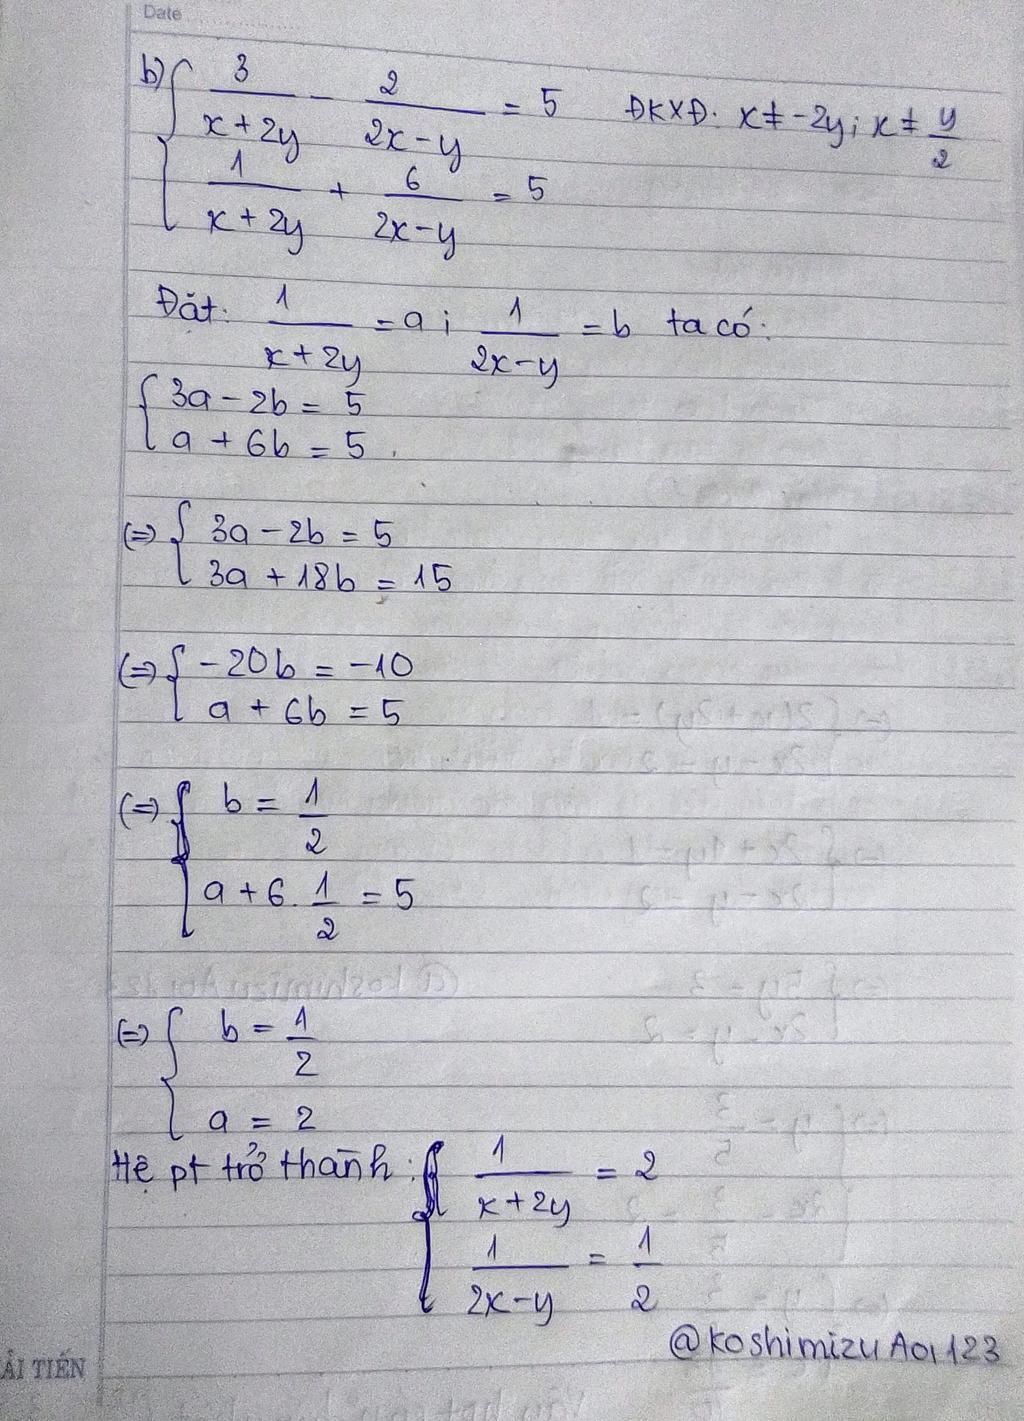 Date
b) { 3/(x+2y) - 2/(2x-y) = 5 ĐKXĐ: x ≠ -2y; x ≠ y/2
1/(x+2y) + 6/(2x-y) = 5
Đặt: 1/(x+2y) = a; 1/(2x-y) = b ta có:
{ 3a - 2b = 5
a + 6b = 5.
(=) { 3a - 2b = 5
3a + 18b = 15
(=) { -20b = -10
a + 6b = 5
(=) { b = 1/2
a + 6. 1/2 = 5
(=) { b = 1/2
a = 2
Hệ pt trở thành: { 1/(x+2y) = 2
1/(2x-y) = 1/2
@koshimizuAoi123
ẢI TIẾN